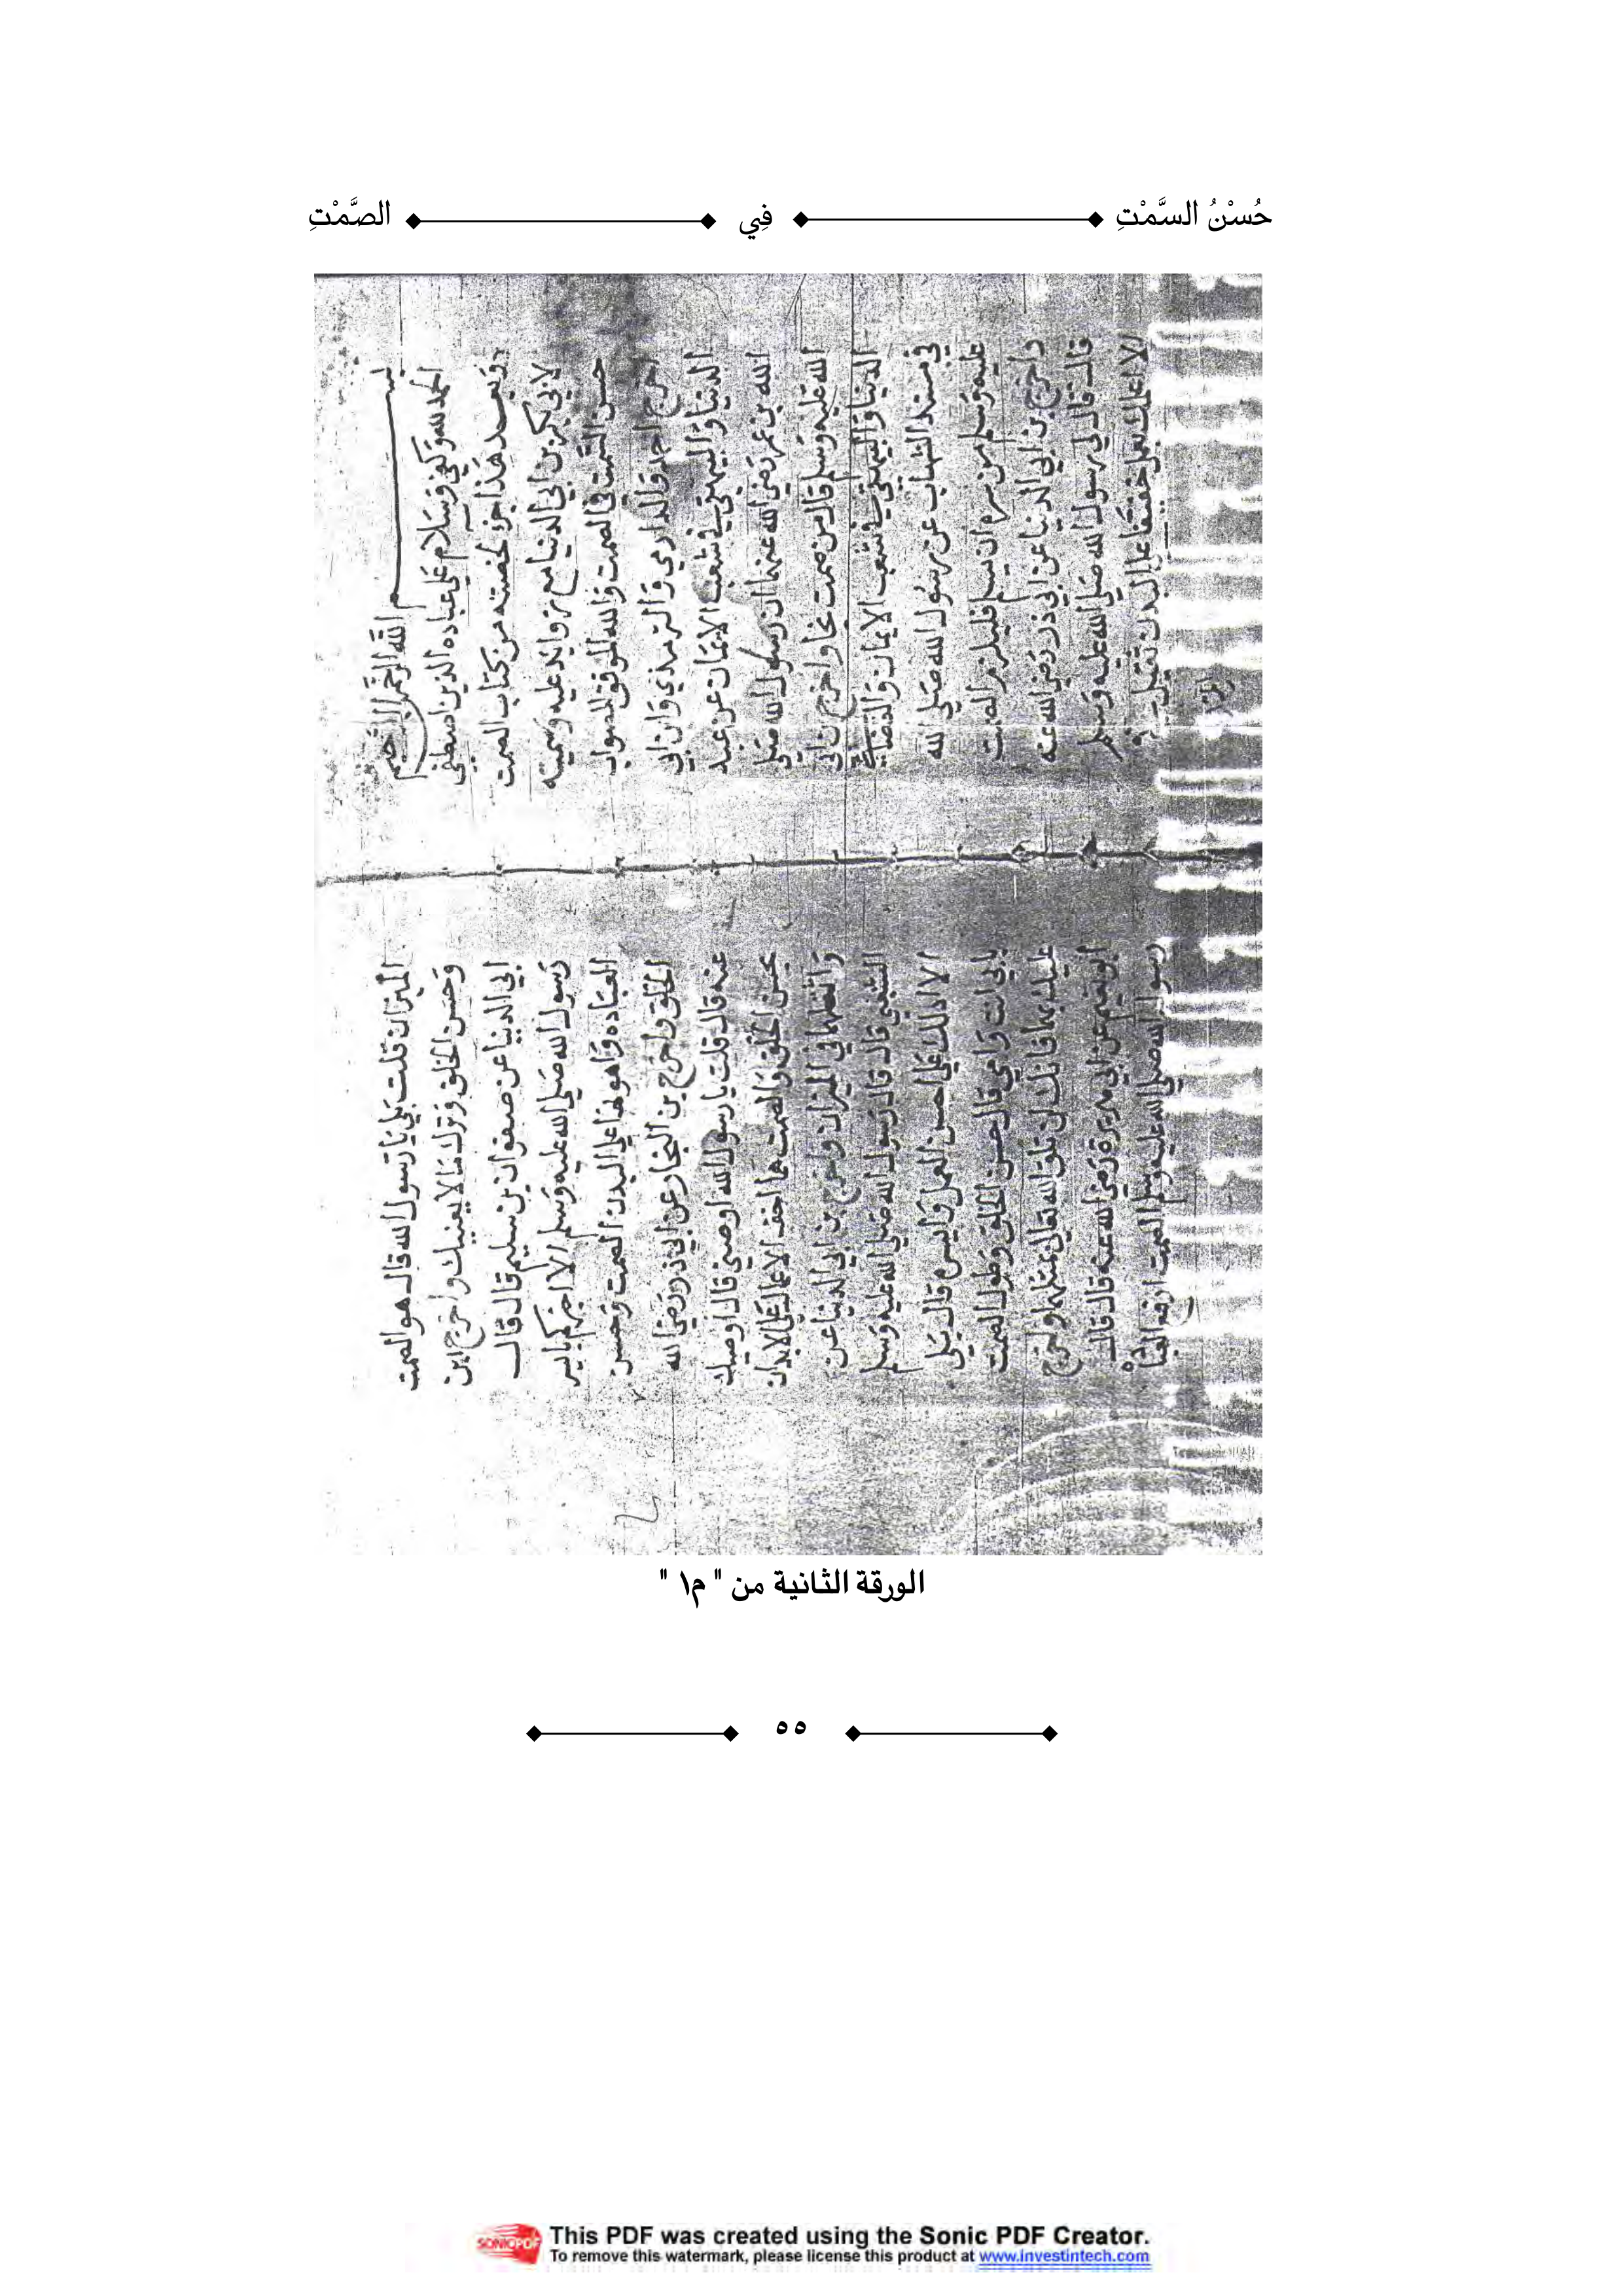 حُسْنُ السَّمْتِ فِي الصَّمْتِ
بسم الله الرحمن الرحيم
الحمد لله وكفى وسلام على عباده الذين اصطفى
وبعد هذا جزء لخصته من كتاب الصمت
لابي بكر بن ابي الدنيا مع زوايد عليه وسميته
حسن السمت في الصمت والله الموفق للصواب
اخرج احمد والدارمي والترمذي وابن ابي
الدنيا والبيهقي في شعب الايمان عن عبد
الله بن عمر رضي الله عنهما ان رسول الله صلى
الله عليه وسلم قال من صمت نجا واخرج بن ابي
الدنيا والبيهقي في شعب الايمان والقضاعي
في مسند الشهاب عن رسول الله صلى الله
عليه وسلم من سره ان يسلم فليلزم الصمت
واخرج بن ابي الدنيا عن ابي ذر رضي الله عنه
قال قال لي رسول الله صلى الله عليه وسلم
الا اعلمك بعمل خفيف على البدن ثقيل في
الميزان
الميزان قلت بلى يا رسول الله قال هو الصمت
وحسن الخلق وترك ما لا يعنيك واخرج ابن
ابي الدنيا عن صفوان بن سليم قال قال
رسول الله صلى الله عليه وسلم الا اخبركم بايسر
العبادة واهونها على البدن الصمت وحسن
الخلق واخرج بن النجار عن ابي ذر رضي الله
عنه قال قلت يا رسول الله اوصني قال اوصيك
بحسن الخلق والصمت هما اخف الاعمال على الابدان
واثقلها في الميزان واخرج بن ابي الدنيا عن
الشعبي قال قال رسول الله صلى الله عليه وسلم
الا ادلك على احسن العمل وايسره قال بلى
بابي انت وامي قال حسن الخلق وطول الصمت
عليك بهما فانك لن تلق الله تعالى بمثلهما واخرج
ابو نعيم عن ابي هريرة رضي الله عنه قال قال
رسول الله صلى الله عليه وسلم الصمت ارفع العبادة
الورقة الثانية من " م١ "
٥٥
SONICPDF
This PDF was created using the Sonic PDF Creator.
To remove this watermark, please license this product at www.investintech.com